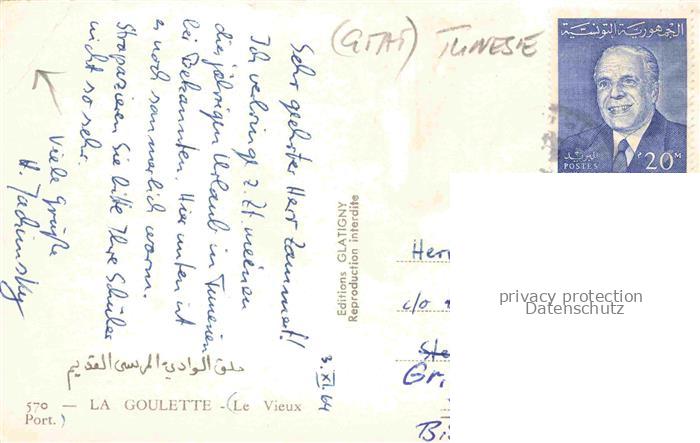 (GITAT) TUNESIE
الجمهورية التونسية
البريد
POSTES
20M
3. XI. 64
Sehr geehrter Herr Zammert!
Ich verbringe z. Zt. meinen
diesjährigen Urlaub in Tunesien
bei Bekannten. Hier unten ist
es noch sommerlich warm.
Strapazieren Sie bitte Ihre Schüler
nicht so sehr.
Viele Grüße
H.
Editions GLATIGNY
Reproduction interdite
Herr
c/o
Ste
Gr.
Bi
privacy protection
Datenschutz
حلق الوادي المرسى القديم
570 — LA GOULETTE - (Le Vieux
Port.)